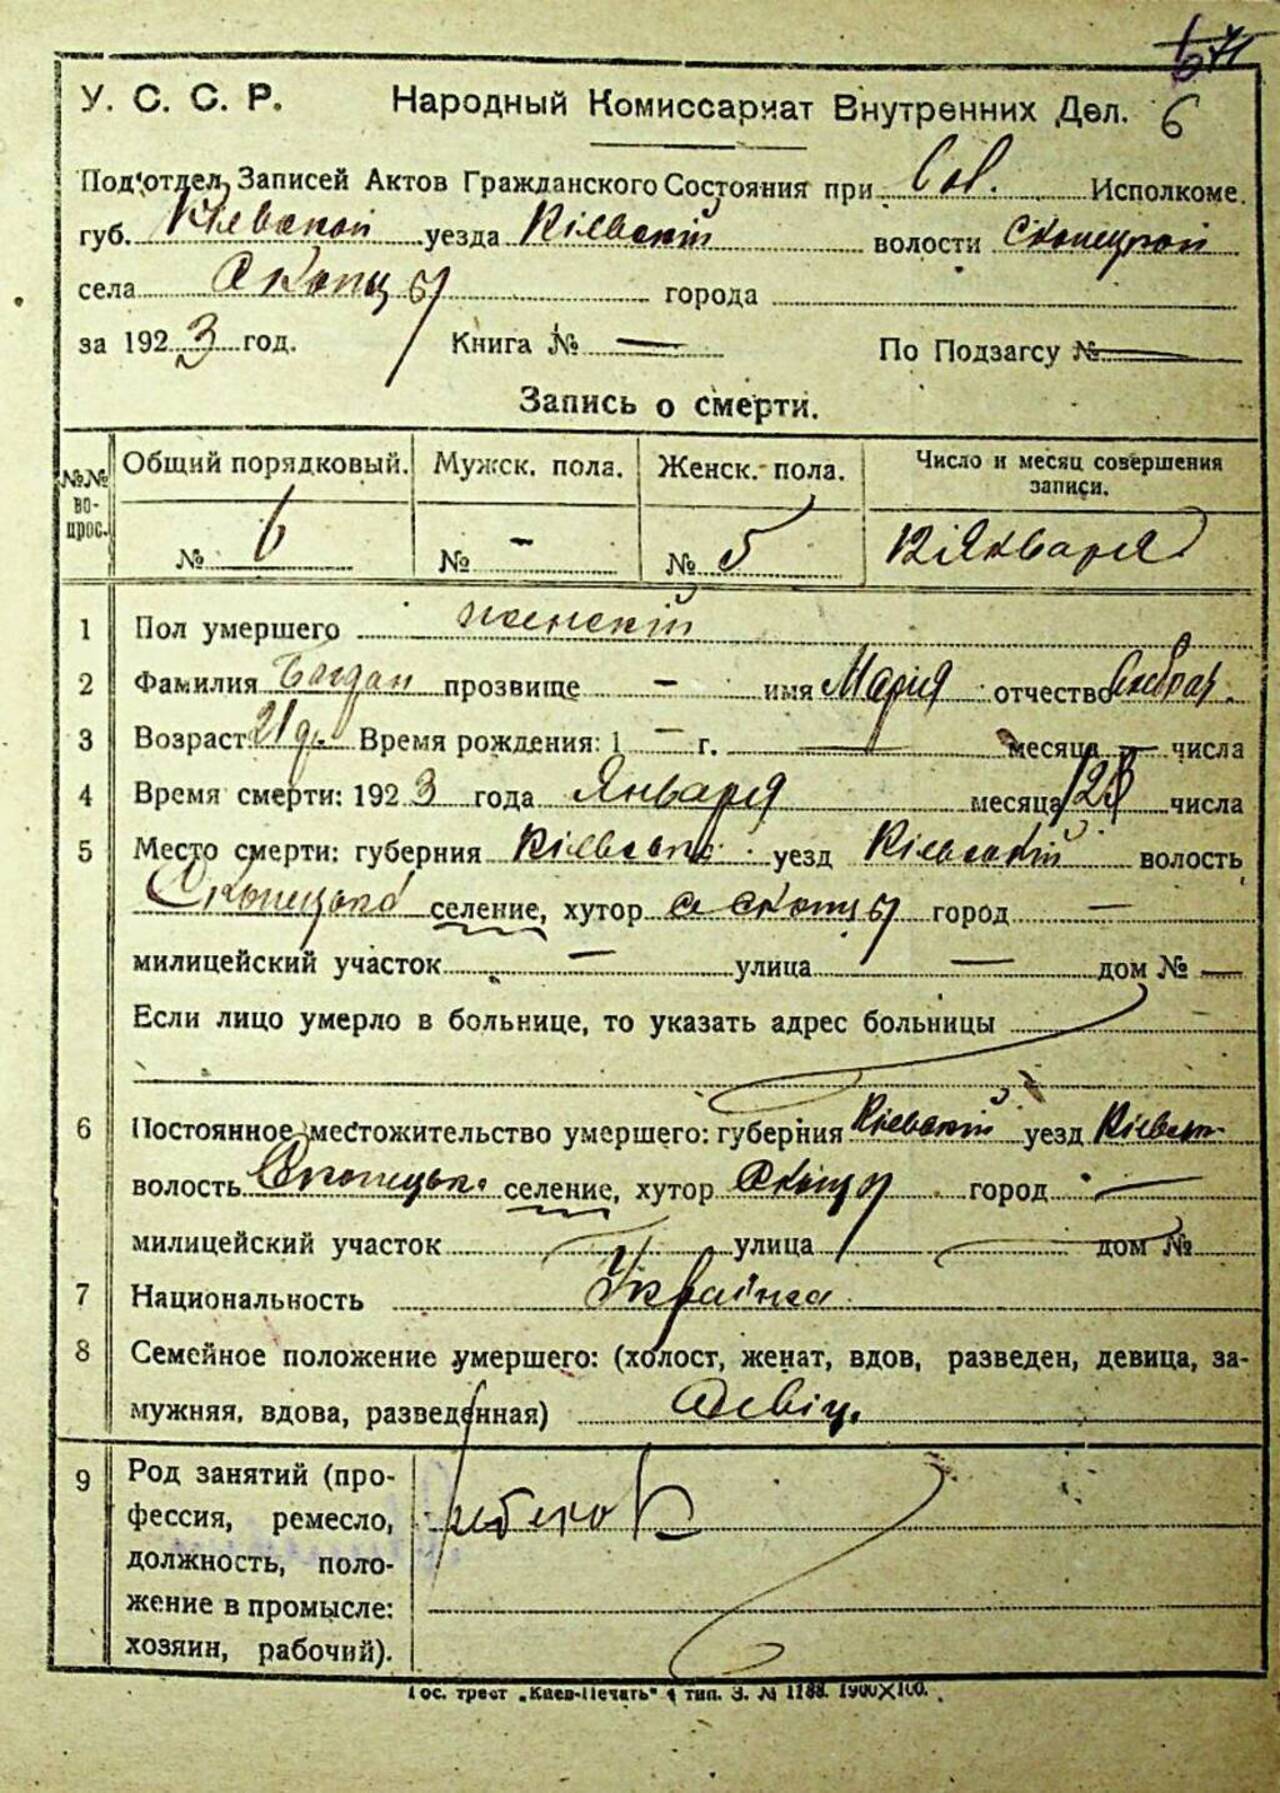 671
У. С. С. Р. Народный Комиссариат Внутренних Дел. 6
Под'отдел Записей Актов Гражданского Состояния при Исполкоме.
губ. Кіевской уезда Кіевскій волости Скопецкой
села Скопцы города
за 1923 год. Книга № — По Подзагсу № —
Запись о смерти.
№№ во- прос. Общий порядковый. Мужск. пола. Женск. пола. Число и месяц совершения записи.
№ 6 № - № 5 12 Января
1 Пол умершего женскій
2 Фамилия Богдан прозвище — имя Марія отчество
3 Возраст 21 д. Время рождения: 1 — г. — месяца — числа
4 Время смерти: 1923 года Января месяца числа
5 Место смерти: губерния уезд Кіевскій волость
селение, хутор с Скопцы город —
милицейский участок — улица — дом № —
Если лицо умерло в больнице, то указать адрес больницы
6 Постоянное местожительство умершего: губерния Кіевскій уезд
волость селение, хутор Скопцы город —
милицейский участок улица дом №
7 Национальность Українка
8 Семейное положение умершего: (холост, женат, вдов, разведен, девица, за-
мужняя, вдова, разведенная) Девіц.
9 Род занятий (про-
фессия, ремесло,
должность, поло-
жение в промысле:
хозяин, рабочий).
Гос. трест „Киев-Печать“ 4 тип. З. № 1188. 1900Х100.